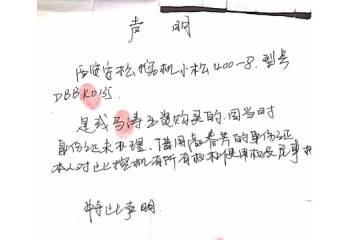 声 明
挖机小松400-8.型号
DBBK0
是我马涛 购买的,因当时
身份证未办理、借用高春芳的身份证
本人对此挖机有所有权和使用权及
特此声明.